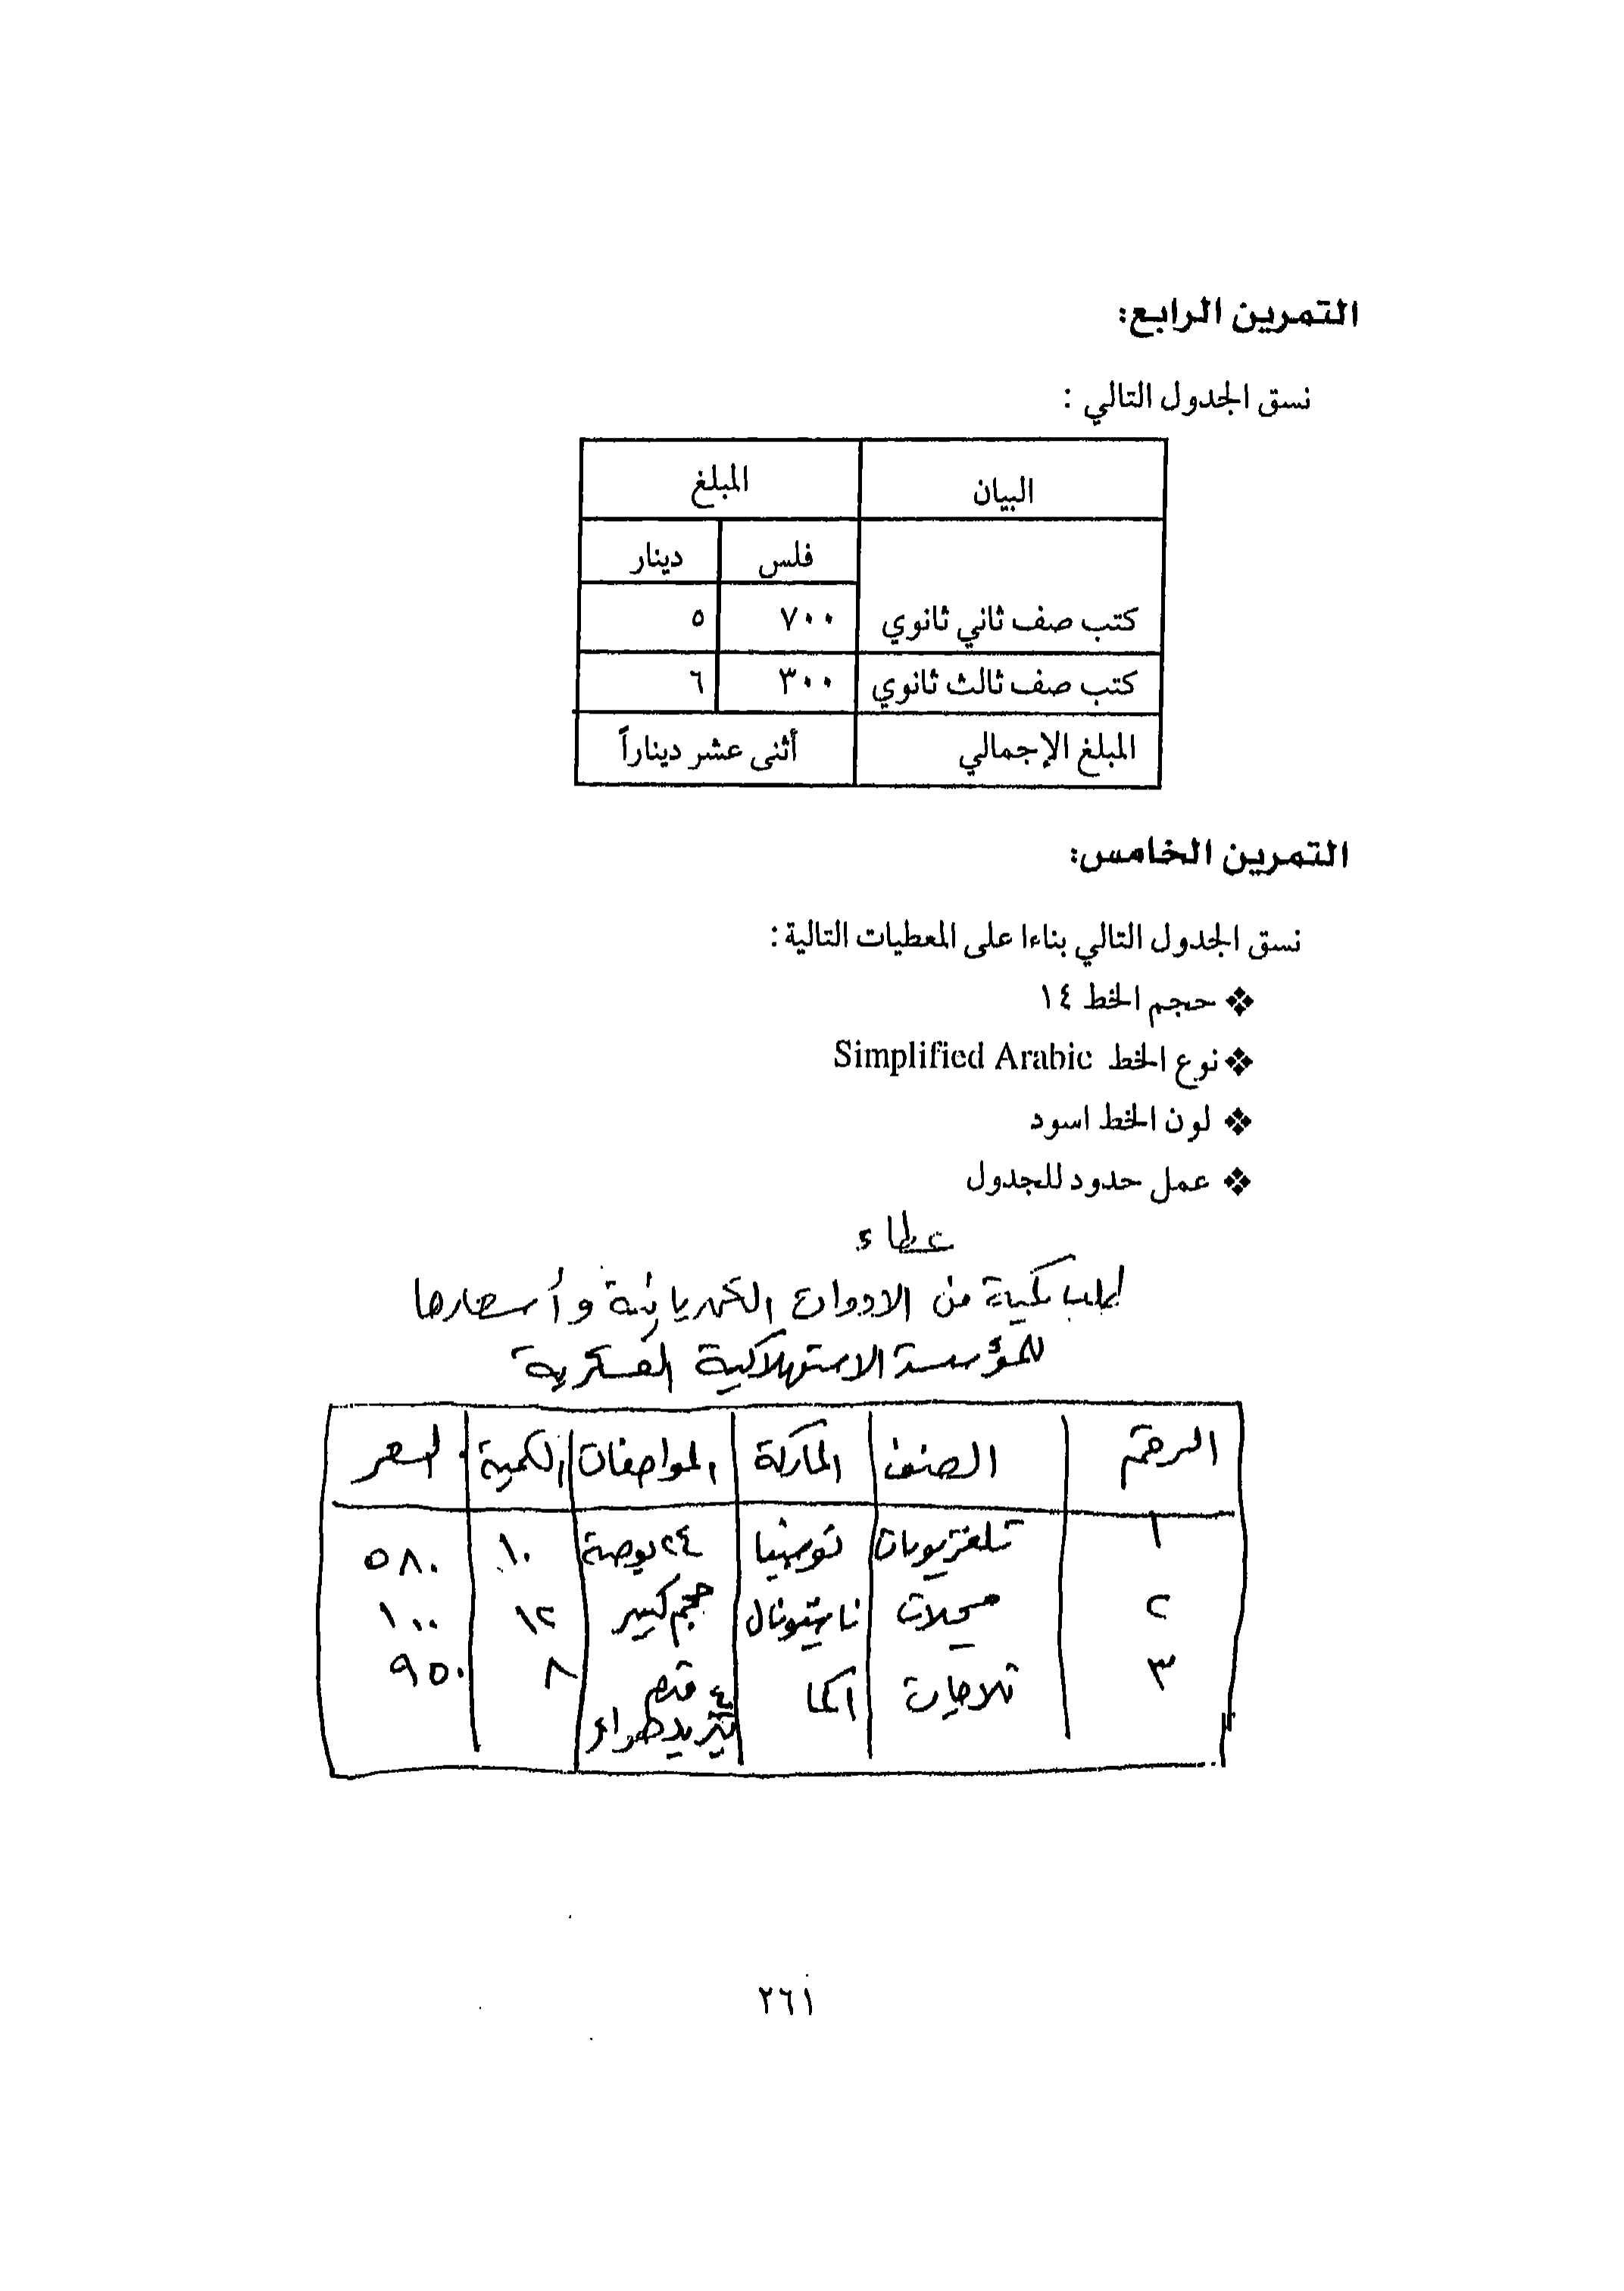 التمرين الرابع:
نسق الجدول التالي :
البيان المبلغ
فلس دينار
كتب صف ثاني ثانوي ٧٠٠ ٥
كتب صف ثالث ثانوي ٣٠٠ ٦
المبلغ الإجمالي أثنى عشر ديناراً
التمرين الخامس:
نسق الجدول التالي بناءا على المعطيات التالية:
❖ حجم الخط ١٤
❖ نوع الخط Simplified Arabic
❖ لون الخط اسود
❖ عمل حدود للجدول
عطاء
لطلب كمية من الادوات الكهربائية وأسعارها
للمؤسسة الاستهلاكية العسكرية
الرقم الصنف الماركة المواصفات الكمية السعر
١ تلفزيونات توشيبا ٢٤ بوصة ١٠ ٥٨٠
٢ مسجلات ناشيونال حجم كبير ١٢ ١٠٠
٣ ثلاجات اكما ٤ قدم ٨ ٩٥٠
تبريد هواء
٢٦١